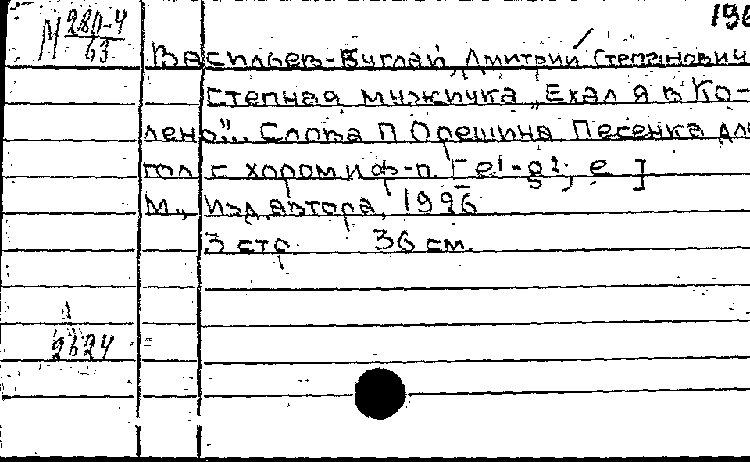 196
М 280-4
63
Васильев-Буглай, Дмитрий Степанович
Степная мужичка „Ехал я в Ко-
лено".. Слова П Орешина Песенка для
гол с хором и ф-п. [e¹-g²; e]
М., Изд. автора, 1926
3 стр. 36 см.
2624